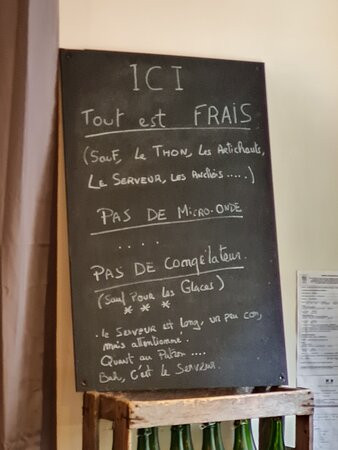 ICI
Tout est FRAIS
(Sauf, Le Thon, Les Artichauts,
Le Serveur, Les Anchois.....)
PAS DE Micro-ONDE
. . . .
PAS DE Congélateur.
(Sauf Pour Les Glaces)
* * *
. Le Serveur est Long, un peu con,
mais attentionné.
Quant au Patron ....
Bah, C'est le Serveur.